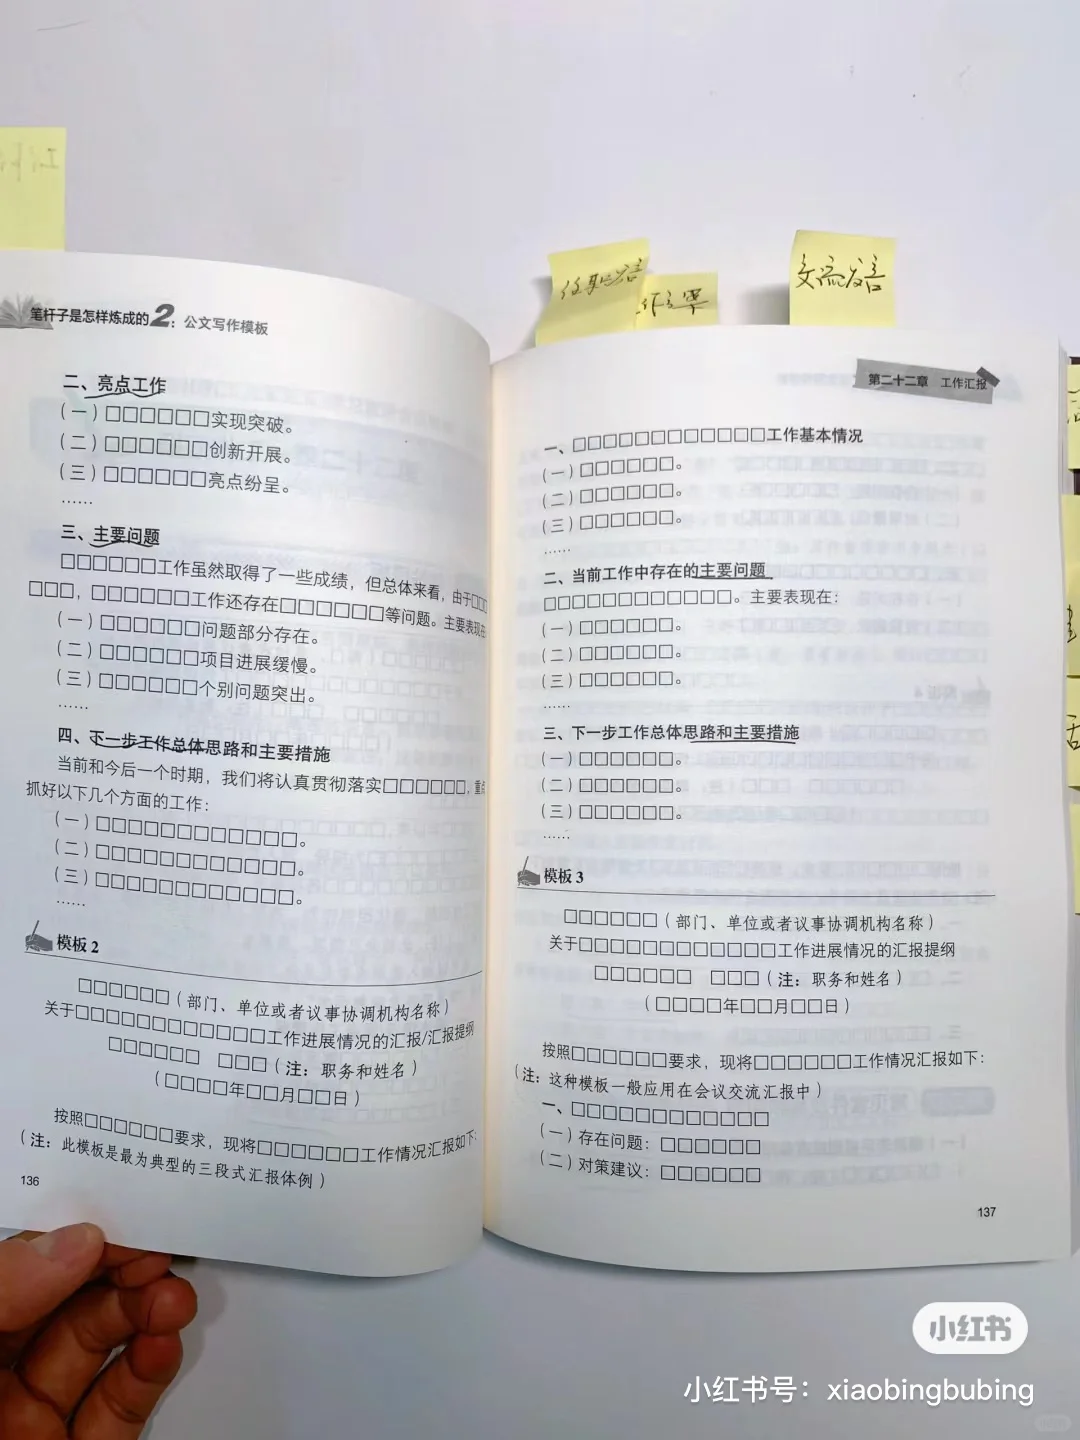 笔杆子是怎样炼成的2：公文写作模板
二、亮点工作
（一）□□□□□□实现突破。
（二）□□□□□□创新开展。
（三）□□□□□□亮点纷呈。
……
三、主要问题
□□□□□□工作虽然取得了一些成绩，但总体来看，由于□□□
□□□，□□□□□□工作还存在□□□□□□等问题。主要表现在
（一）□□□□□□问题部分存在。
（二）□□□□□□项目进展缓慢。
（三）□□□□□□个别问题突出。
……
四、下一步工作总体思路和主要措施
当前和今后一个时期，我们将认真贯彻落实□□□□□□，重点
抓好以下几个方面的工作：
（一）□□□□□□□□□□□□。
（二）□□□□□□□□□□□□。
（三）□□□□□□□□□□□□。
……
模板2
□□□□□□（部门、单位或者议事协调机构名称）
关于□□□□□□□□□□□□工作进展情况的汇报/汇报提纲
□□□□□□ □□□（注：职务和姓名）
（□□□□年□□月□□日）
按照□□□□□□要求，现将□□□□□□工作情况汇报如下：
（注：此模板是最为典型的三段式汇报体例）
136
交流发言
第二十二章 工作汇报
一、□□□□□□□□□□□□工作基本情况
（一）□□□□□□。
（二）□□□□□□。
（三）□□□□□□。
……
二、当前工作中存在的主要问题
□□□□□□□□□□□□。主要表现在：
（一）□□□□□□。
（二）□□□□□□。
（三）□□□□□□。
……
三、下一步工作总体思路和主要措施
（一）□□□□□□。
（二）□□□□□□。
（三）□□□□□□。
……
模板3
□□□□□□（部门、单位或者议事协调机构名称）
关于□□□□□□□□□□□□工作进展情况的汇报提纲
□□□□□□ □□□（注：职务和姓名）
（□□□□年□□月□□日）
按照□□□□□□要求，现将□□□□□□工作情况汇报如下：
（注：这种模板一般应用在会议交流汇报中）
一、□□□□□□□□□□□□
（一）存在问题：□□□□□□
（二）对策建议：□□□□□□
137
小红书
小红书号：xiaobingbubing